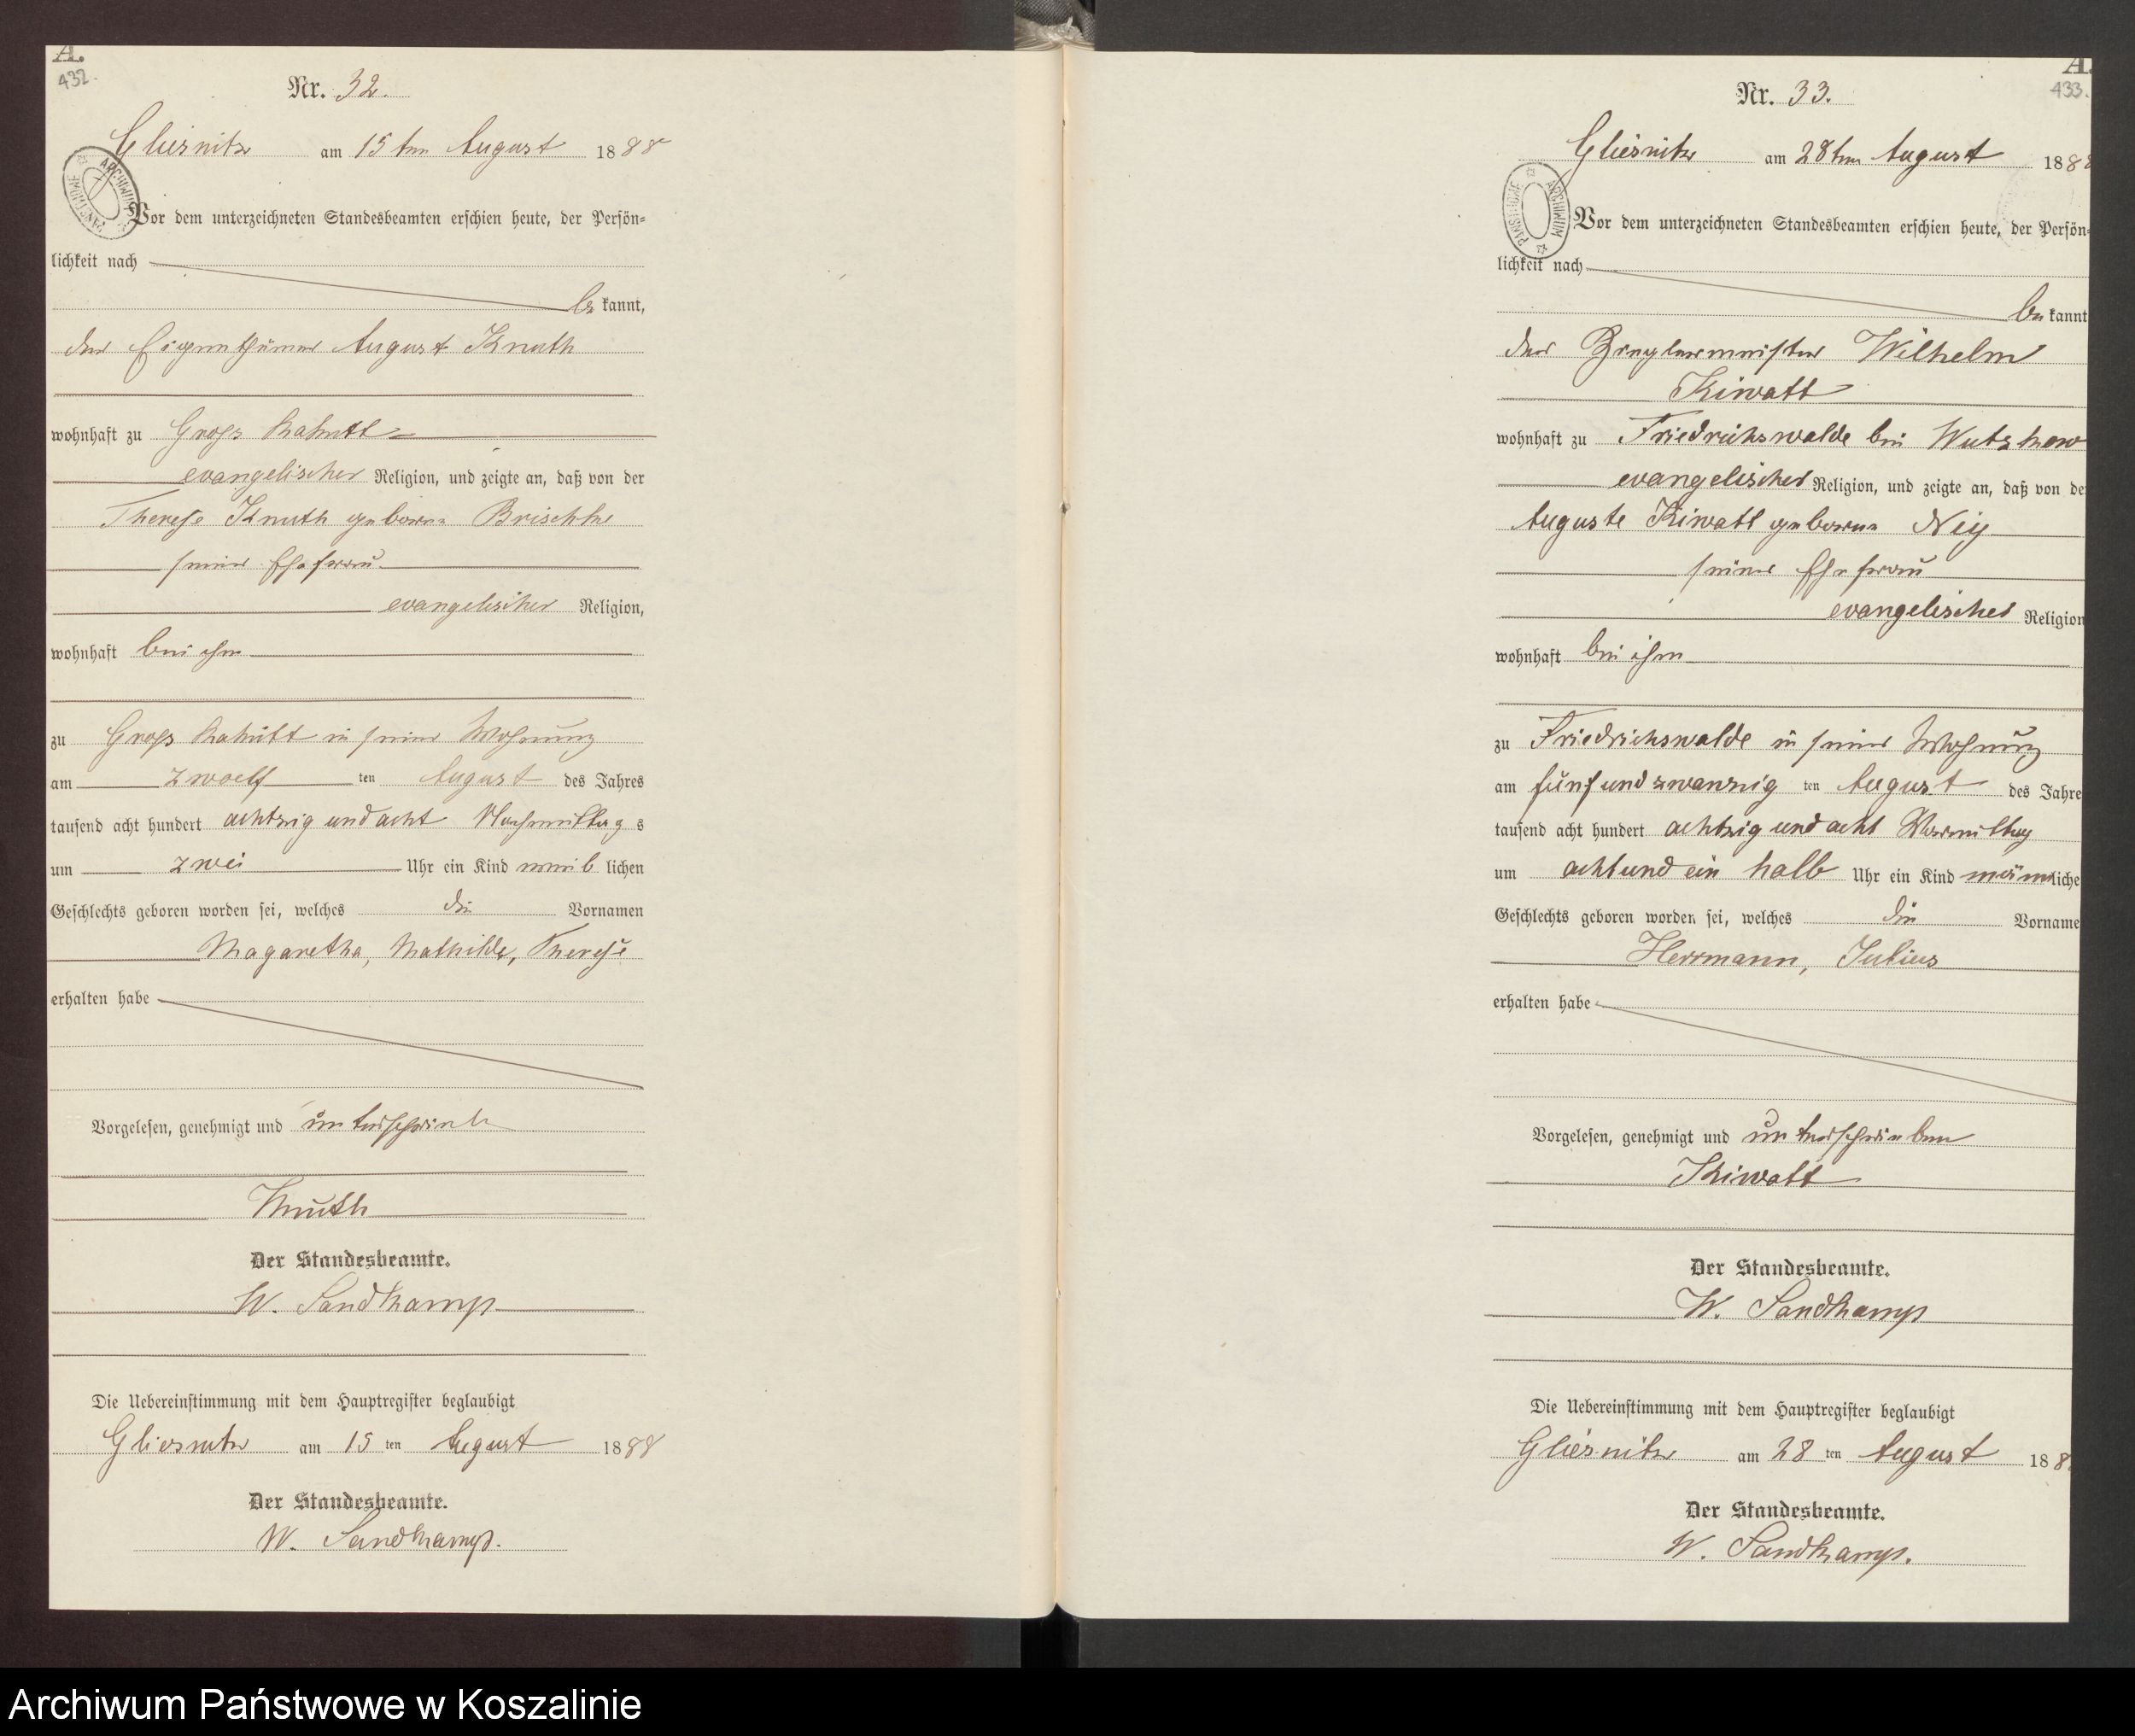 A.
432.
Nr. 32.
Gliesnitz am 15ten August 1888
ARCHIWUM PAŃSTWOWE
Vor dem unterzeichneten Standesbeamten erschien heute, der Persön=
lichkeit nach
be kannt,
der Eigenthümer August Knuth
wohnhaft zu Gross Nakutt
evangelischer Religion, und zeigte an, daß von der
Therese Knuth geborne Brischke
seiner Ehefrau
evangelischer Religion,
wohnhaft bei ihm
zu Gross Nakutt in seiner Wohnung
am zwoelf ten August des Jahres
tausend acht hundert achtzig und acht Nachmittag s
um zwei Uhr ein Kind weib lichen
Geschlechts geboren worden sei, welches die Vornamen
Magaretha, Mathilde, Therese
erhalten habe
Vorgelesen, genehmigt und unterschrieb
Knuth
Der Standesbeamte.
W. Sandkamp
Die Uebereinstimmung mit dem Hauptregister beglaubigt
Gliesnitz am 15 ten August 1888
Der Standesbeamte.
W. Sandkamp.
A.
433.
Nr. 33.
Gliesnitz am 28ten August 188
ARCHIWUM PAŃSTWOWE
Vor dem unterzeichneten Standesbeamten erschien heute, der Persön=
lichkeit nach
be kannt
der Zieglermeister Wilhelm
Kiwatt
wohnhaft zu Friedrichswalde bei Wutzkow
evangelischer Religion, und zeigte an, daß von de
Auguste Kiwatt geborne Neij
seiner Ehefrau
evangelischer Religion
wohnhaft bei ihm
zu Friedrichswalde in seiner Wohnung
am fünf und zwanzig ten August des Jahre
tausend acht hundert achtzig und acht Vormittag
um acht und ein halb Uhr ein Kind männliche
Geschlechts geboren worden sei, welches die Vorname
Herrmann, Julius
erhalten habe
Vorgelesen, genehmigt und unterschrieben
Kiwatt
Der Standesbeamte.
W. Sandkamp
Die Uebereinstimmung mit dem Hauptregister beglaubigt
Gliesnitz am 28 ten August 188
Der Standesbeamte.
W. Sandkamp.
Archiwum Państwowe w Koszalinie